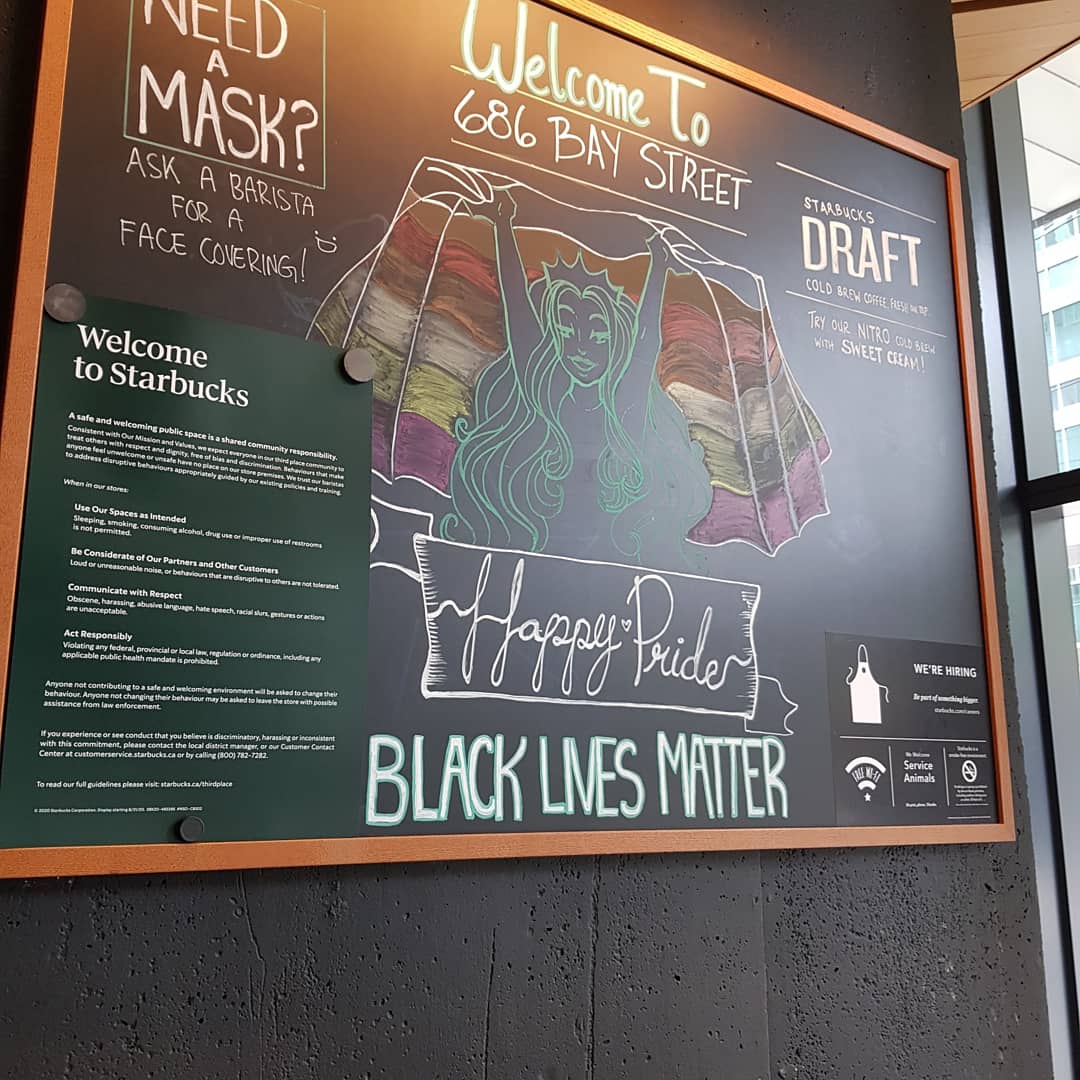 NEED
A
MASK?
ASK A BARISTA
FOR A
FACE COVERING!
Welcome To
686 BAY STREET
STARBUCKS
DRAFT
COLD BREW COFFEE, FRESH ON TAP.
TRY OUR NITRO COLD BREW
WITH SWEET CREAM!
Welcome
to Starbucks
A safe and welcoming public space is a shared community responsibility.
Consistent with Our Mission and Values, we expect everyone in our third place community to
treat others with respect and dignity, free of bias and discrimination. Behaviours that make
anyone feel unwelcome or unsafe have no place on our store premises. We trust our baristas
to address disruptive behaviours appropriately guided by our existing policies and training.
When in our stores:
Use Our Spaces as Intended
Sleeping, smoking, consuming alcohol, drug use or improper use of restrooms
is not permitted.
Be Considerate of Our Partners and Other Customers
Loud or unreasonable noise, or behaviours that are disruptive to others are not tolerated.
Communicate with Respect
Obscene, harassing, abusive language, hate speech, racial slurs, gestures or actions
are unacceptable.
Act Responsibly
Violating any federal, provincial or local law, regulation or ordinance, including any
applicable public health mandate is prohibited.
Anyone not contributing to a safe and welcoming environment will be asked to change their
behaviour. Anyone not changing their behaviour may be asked to leave the store with possible
assistance from law enforcement.
If you experience or see conduct that you believe is discriminatory, harassing or inconsistent
with this commitment, please contact the local district manager, or our Customer Contact
Center at customerservice.starbucks.ca or by calling (800) 782-7282.
To read our full guidelines please visit: starbucks.ca/thirdplace
© 2020 Starbucks Corporation. Display starting
Happy Pride
BLACK LIVES MATTER
WE'RE HIRING
Be part of something bigger.
starbucks.com/careers
FREE WI-FI
We Welcome
Service
Animals
Starbucks is a
smoke-free environment.